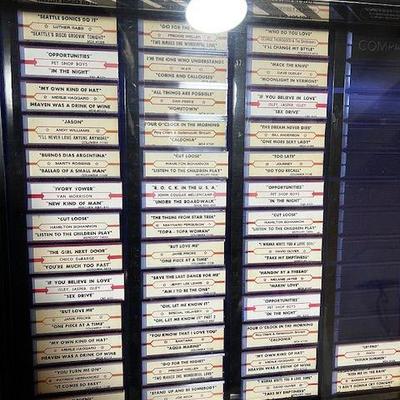 "SEATTLE SONICS DO IT"
LUTHER RABB
"SEATTLE'S DISCO GROOVIN TONIGHT"
"OPPORTUNITIES"
PET SHOP BOYS
"IN THE NIGHT"
"MY OWN KIND OF HAT"
MERLE HAGGARD
HEAVEN WAS A DRINK OF WINE
"JASON"
ANDY WILLIAMS
"I'LL NEVER LOVE ANYONE ANYMORE"
"BUENOS DIAS ARGENTINA"
MARTY ROBBINS
"BALLAD OF A SMALL MAN"
"IVORY TOWER"
VAN MORRISON
"NEW KIND OF MAN"
"CUT LOOSE"
HAMILTON BOHANNON
"LISTEN TO THE CHILDREN PLAY"
"THE GIRL NEXT DOOR"
CHICO DeBARGE
"YOU'RE MUCH TOO FAST"
"IF YOU BELIEVE IN LOVE"
ISLEY, JASPER, ISLEY
"SEX DRIVE"
"BUT LOVE ME"
JANIE FRICKE
"ONE PIECE AT A TIME"
"MY OWN KIND OF HAT"
MERLE HAGGARD
HEAVEN WAS A DRINK OF WINE
"YOU TURN ME ON"
"IT COMES SO EASY"
"GO FOR THE
FREDDIE SHELLEY
"TWO MAKES ONE WONDERFUL LOVE"
"I'M THE ONE WHO UNDERSTANDS"
WAR
"CORNS AND CALLOUSES"
"ALL THINGS ARE POSSIBLE"
DAN PEEK
"HOMETOWN"
"FOUR O'CLOCK IN THE MORNING
"CALDONIA"
"CUT LOOSE"
HAMILTON BOHANNON
"LISTEN TO THE CHILDREN PLAY"
"R. O. C. K. IN THE U. S. A."
JOHN COUGAR MELLENCAMP
"UNDER THE BOARDWALK"
"THE THEME FROM STAR TREK"
MAYNARD FERGUSON
"TOPA - TOPA WOMAN"
"BUT LOVE ME"
JANIE FRICKE
"ONE PIECE AT A TIME"
"SAVE THE LAST DANCE FOR ME"
JERRY LEE LEWIS
"AM I TO BE THE ONE"
"OH, LET ME KNOW IT"
SPECIAL DELIVERY
"OH, LET ME KNOW IT
"YOU KNOW THAT I LOVE YOU"
SANTANA
"AQUA MARINE"
"GO FOR THE NIGHT"
FREDDIE SHELLEY
"TWO MAKES ONE WONDERFUL LOVE"
"STAND UP AND BE SOMEBODY"
"WHO DO YOU LOVE"
GEORGE THOROGOOD & THE DESTROYERS
"I'LL CHANGE MY STYLE"
"MACK THE KNIFE"
DAVE DUDLEY
"MOONLIGHT IN VERMONT"
"IF YOU BELIEVE IN LOVE"
ISLEY, JASPER, ISLEY
"SEX DRIVE"
"THE DREAM NEVER DIES"
BILL ANDERSON
"ONE MORE SEXY LADY"
"TOO LATE"
JOURNEY
"DO YOU RECALL"
"OPPORTUNITIES"
PET SHOP BOYS
"IN THE NIGHT"
"CUT LOOSE"
HAMILTON BOHANNON
"LISTEN TO THE CHILDREN PLAY"
"I WANNA WRITE YOU A LOVE SONG"
DAVID OLIVER
"TAKE MY EMPTINESS"
"HANGIN' BY A THREAD"
MELANIE JAYNE
"MAKIN' LOVE"
"OPPORTUNITIES"
PET SHOP BOYS
"IN THE NIGHT"
FOUR O'CLOCK IN THE MORNING
"CALDONIA"
"MY OWN KIND OF HAT"
MERLE HAGGARD
HEAVEN WAS A DRINK OF WINE
"I WANNA WRITE YOU A LOVE SONG"
DAVID OLIVER
"TAKE MY EMPTINESS"
COMPA